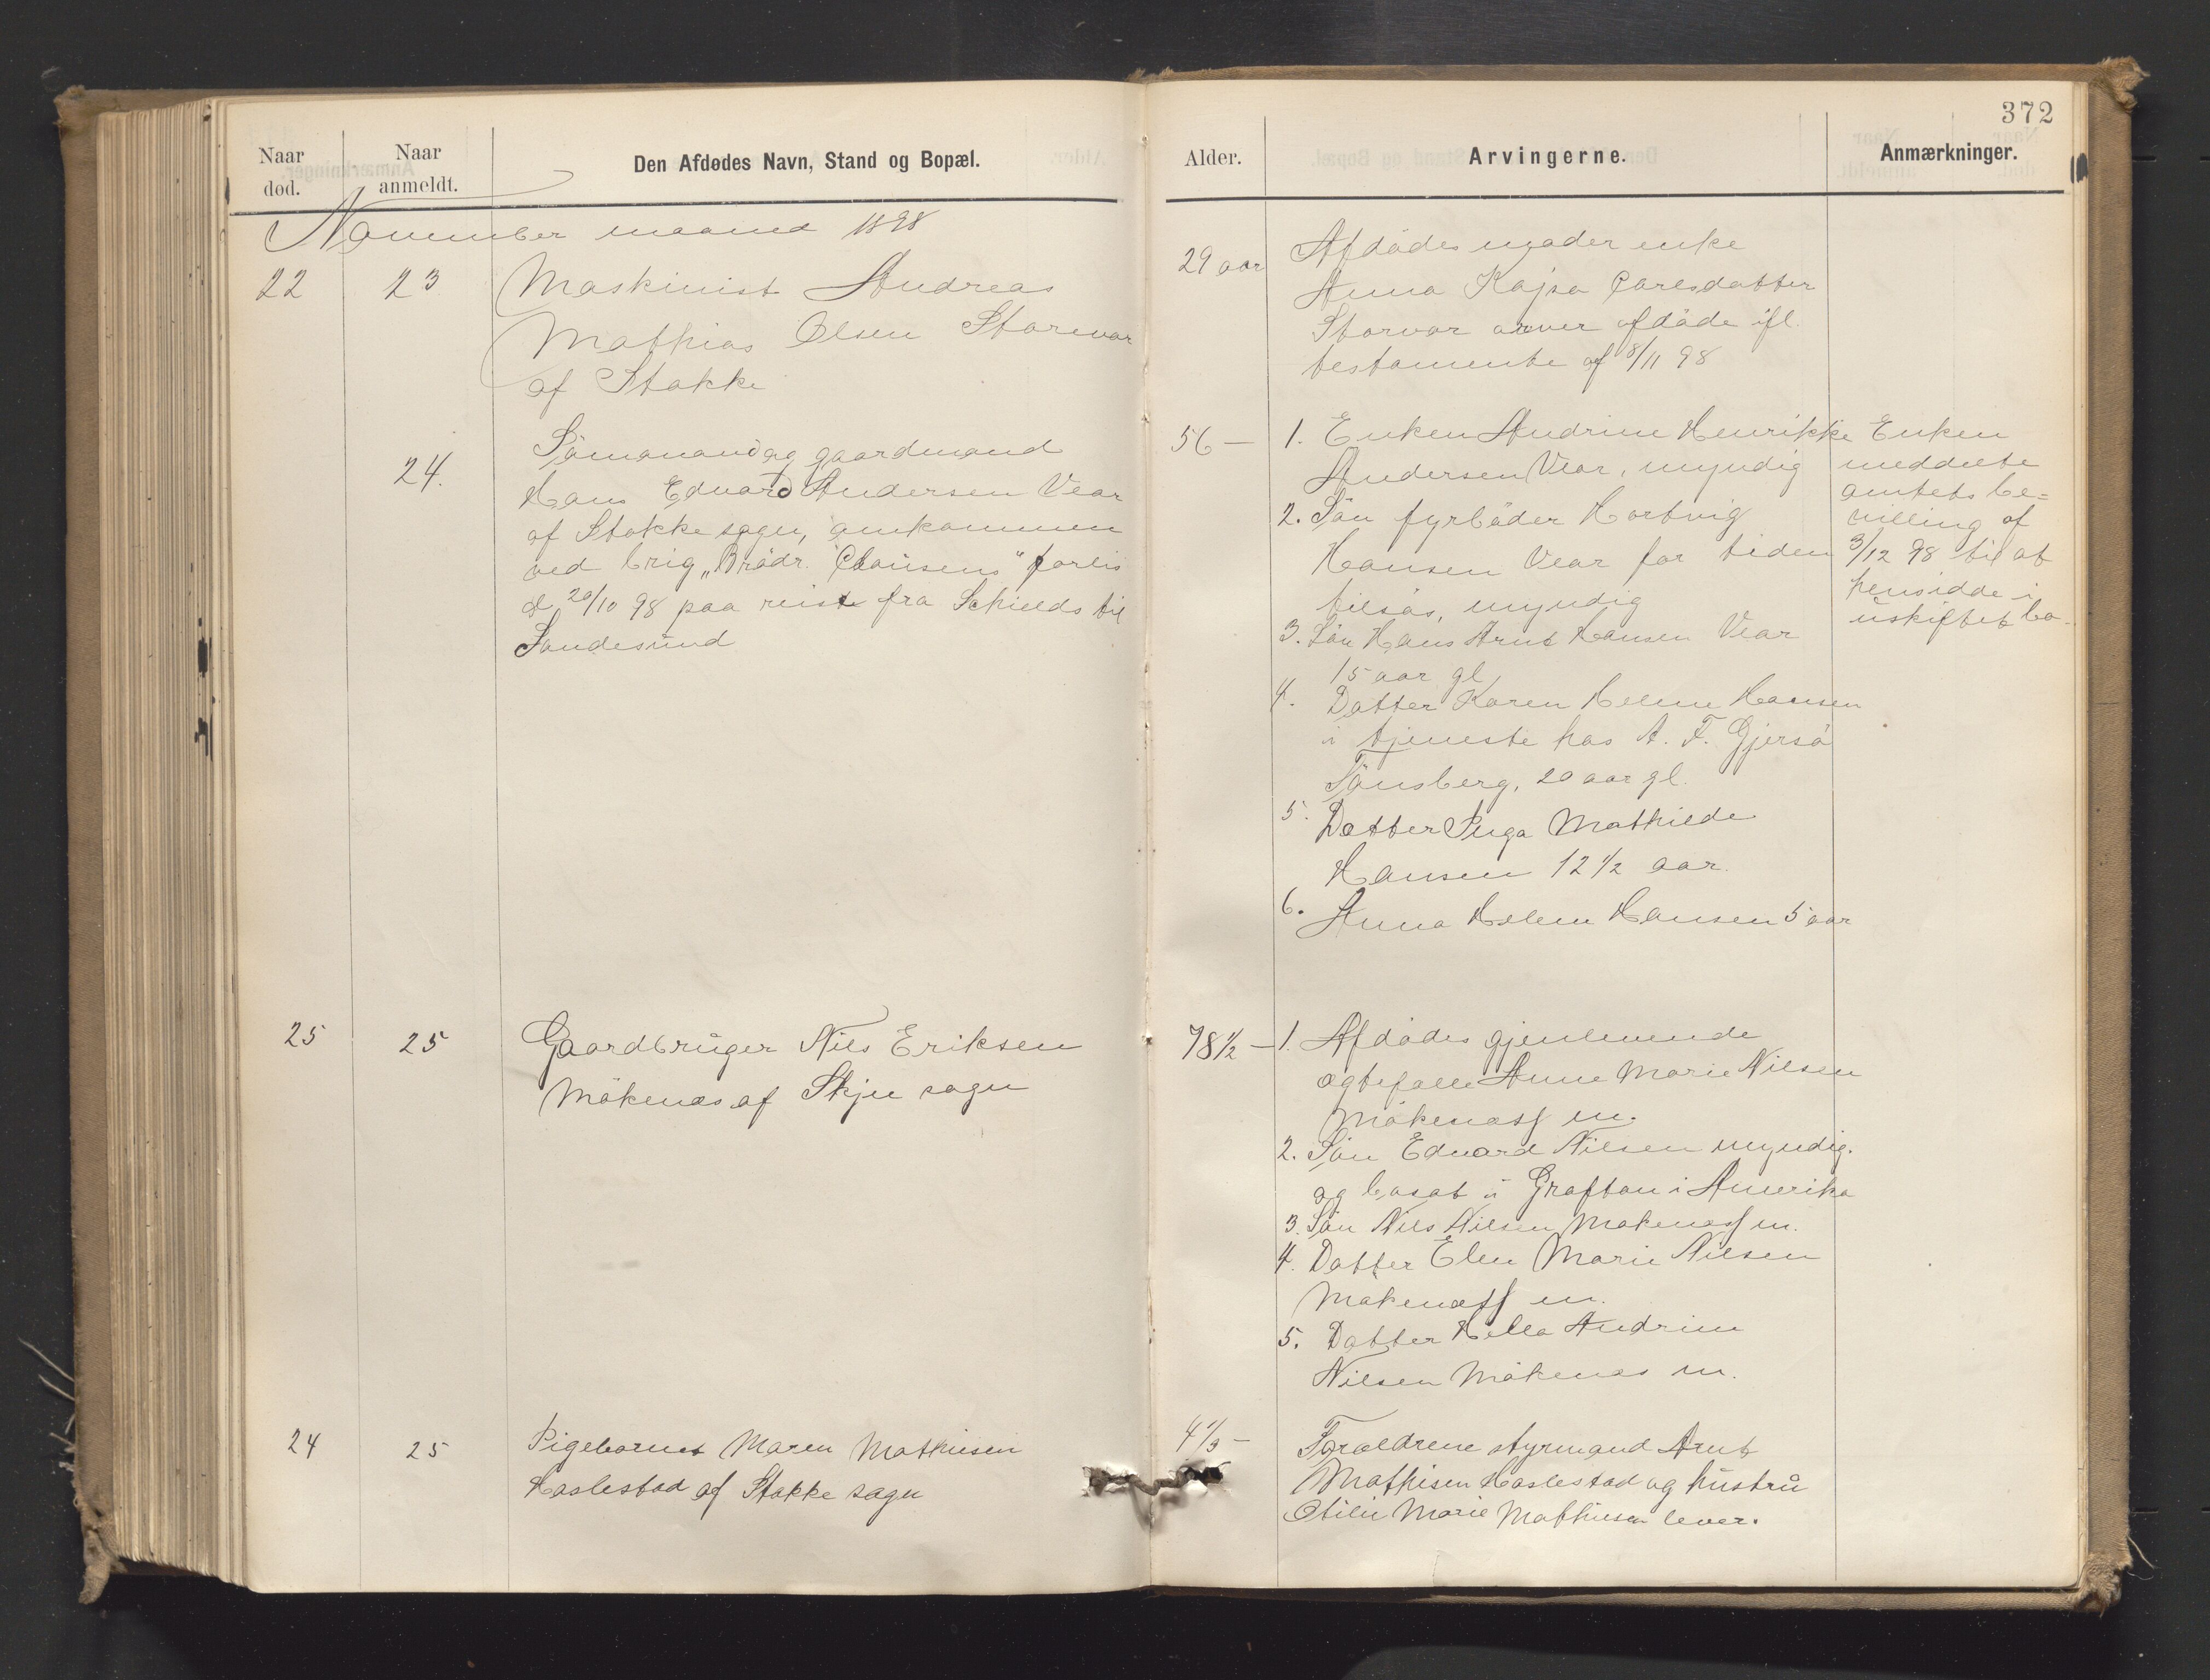 372
Naar død.
Naar anmeldt.
Den Afdødes Navn, Stand og Bopæl.
Alder.
Arvingerne.
Anmærkninger.
November maaned 1898
22
23
Maskinist Andreas
Mathias Olsen Storevar
af Stokke
29 aar
Afdödes moder enke
Anna Kajsa Carlsdatter
Storvar arver afdöde ifl.
testamente af 8/11 98
24.
Sömand og gaardmand
Hans Edvard Andersen Vear
af Stokke sogn, omkommen
ved brig „Brödr. Clausens" forlis
d 20/10 98 paa reise fra Schields til
Sandesund
56 —
1. Enken Andrine Henrikke
Andersen Vear, myndig
2. Sön fyrböder Hartvig
Hansen Vear for tiden
tilsös, myndig
3. Sön Hans Arnt Hansen Vear
15 aar gl
4. Datter Karen Helene Hansen
i tjeneste hos A. F. Gjersö
Tönsberg, 20 aar gl.
5. Datter Inga Mathilde
Hansen 12 1/2 aar.
6. Anna Helene Hansen 5 aar
Enken
meddelte
amtets be=
villing af
3/12 98 til at
hensidde i
uskiftet bo.
25
25
Gaardbruger Nils Eriksen
Mökenæs af Skjee sogn
78 1/2 —
1. Afdödes gjenlevende
ægtefælle Anne Marie Nilsen
Mökenæss m.
2. Sön Edvard Nilsen myndig.
og bosat i Grafton i Amerika
3. Sön Nils Nilsen Mökenæss m.
4. Datter Elen Marie Nilsen
Mökenæss m.
5. Datter Hella Andrine
Nilsen Mökenæs m.
24
25
Pigebarnet Maren Mathisen
Haslestad af Stokke sogn
4 1/3 —
Forældrene styrmand Arnt
Mathisen Haslestad og hustru
Otilie Marie Mathisen lever.